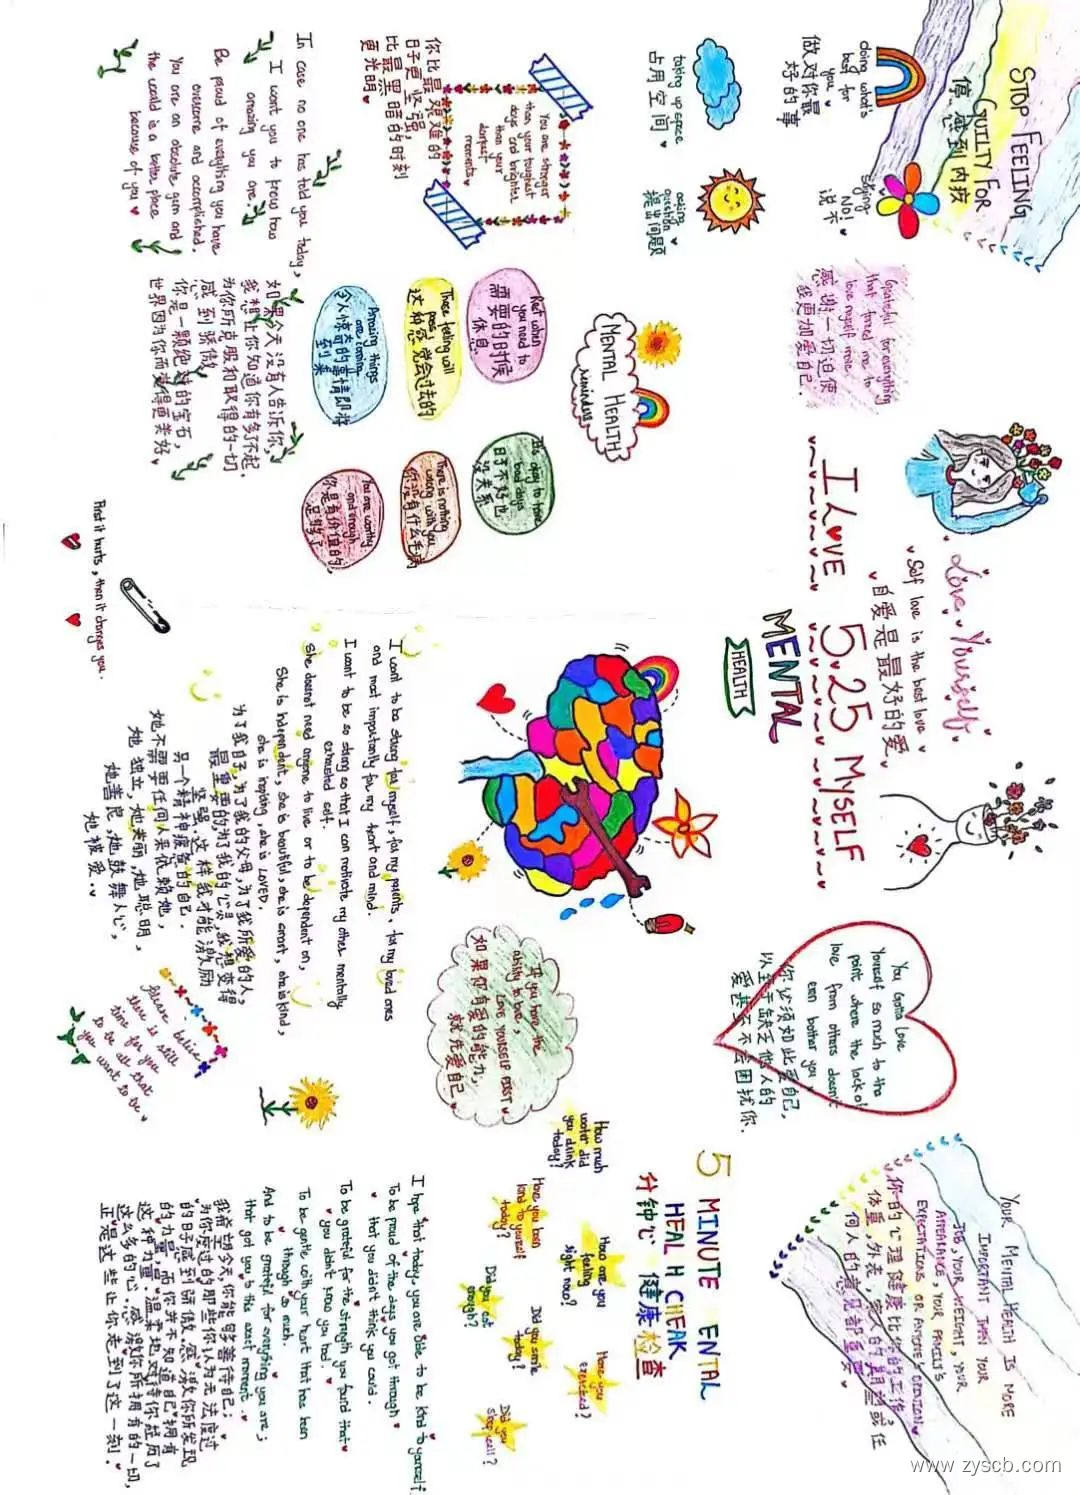 STOP FEELING
GUILTY FOR
停止感到内疚
doing what's
best for
you
做对你最
好的事
Saying
No!
说不
taking up space
占用空间
asking
question
提出问题
You are stronger
than your toughest
days and brighter
than your
darkest
moments
你比最艰难的
日子更坚强，
比最黑暗的时刻
更光明
In case no one has told you today,
I want you to know how
amazing you are.
Be proud of everything you have
overcome and accomplished.
You are an absolute gem and
the world is a better place
because of you
如果今天没有人告诉你，
我想让你知道你有多了不起.
为你所克服和取得的一切
感到骄傲
你是一颗绝对的宝石，
世界因为你而变得更美好
Grateful for everything
that forced me to
love myself more
感谢一切迫使
我更加爱自己.
MENTAL HEALTH
reminders
Rest when
you need to
需要的时候
休息
These feeling will
pass
这种感觉会过去的
Amazing things
are coming
令人惊奇的事情即将
到来
It's okay to have
bad days
日子不好也
没关系
There is nothing
wrong with you
你没有什么毛病
You are worthy
and enough
你是有价值的，
足够了
First it hurts, then it changes you.
Love Yourself
Self love is the best love
自爱是最好的爱
I LOVE 5.25 MYSELF
MENTAL
HEALTH
I want to be strong for myself, for my parents, for my loved ones
and most importantly for my heart and mind.
I want to be so strong so that I can motivate my other mentally
exhausted self.
She doesnot need anyone to live or to be dependent on,
She is independent, she is beautiful, she is smart, she is kind,
she is inspiring, she is LOVED.
为了我自子，为了我的父母，为了我所爱的人，
最重要的为了我的心灵，我想变得
坚强，这样我才能激励
另一个精神疲惫的自己.
她不需要任何人来依赖她，
她独立，她美丽，她聪明，
她善良，她鼓舞人心，
她被爱.
Please believe
there is still
time for you
to be all that
you want to be
You Gotta Love
Yourself so much to the
point where the lack of
love from others doesn't
even bother you
你必须如此爱自己，
以至于缺乏他人的
爱甚至不会困扰你.
If you have the
ability to love,
LOVE YOURSELF FIRST
如果你有爱的能力，
就先爱自己
YOUR MENTAL HEALTH IS MORE
IMPORTANT THAN YOUR
JOB, YOUR WEIGHT, YOUR
APPEARANCE, YOUR FAMILY'S
EXPECTATIONS OR ANYONE'S OPINION
你的心理健康比你的工作，
体重，外表，家人的期望或任
何人的意见都重要
5 MINUTE ENTAL
HEAL H CHEAK
分钟心 健康检查
How much
water did
you drink
today?
Have you been
kind to yourself
today?
How are you
feeling
right now?
Did you eat
enough?
Did you smile
today?
Have you
exercised?
Did you
sleep well?
I hope that today you are able to be kind to yourself.
To be proud of the days you got through
that you didn't think you could.
To be grateful for the strength you found that
you didn't know you had.
To be gentle with your heart that has been
through so much.
And to be grateful for everything you are;
that got you to this exact moment.
我希望今天，你能够善待自己；
为你度过的那些你认为无法度过
的日子感到骄傲，感激你所发现
的力量，而你并不知道自己拥有
这种力量. 温柔地对待你经历了
这么多的心，感激你所拥有的一切，
正是这些让你走到了这一刻.
www.zyscb.com